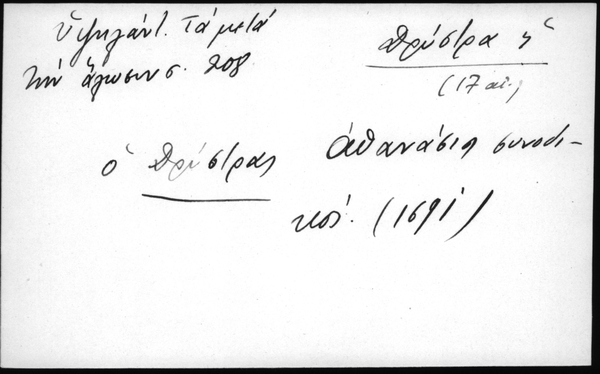 Ὑψηλάντ. Τά μετά
τήν ἅλωσιν σ. 208
Δρύστρα ἡ
(17 αἰ.)
ὁ Δρύστρας Ἀθανάσιος συνοδι-
κός. (1691)